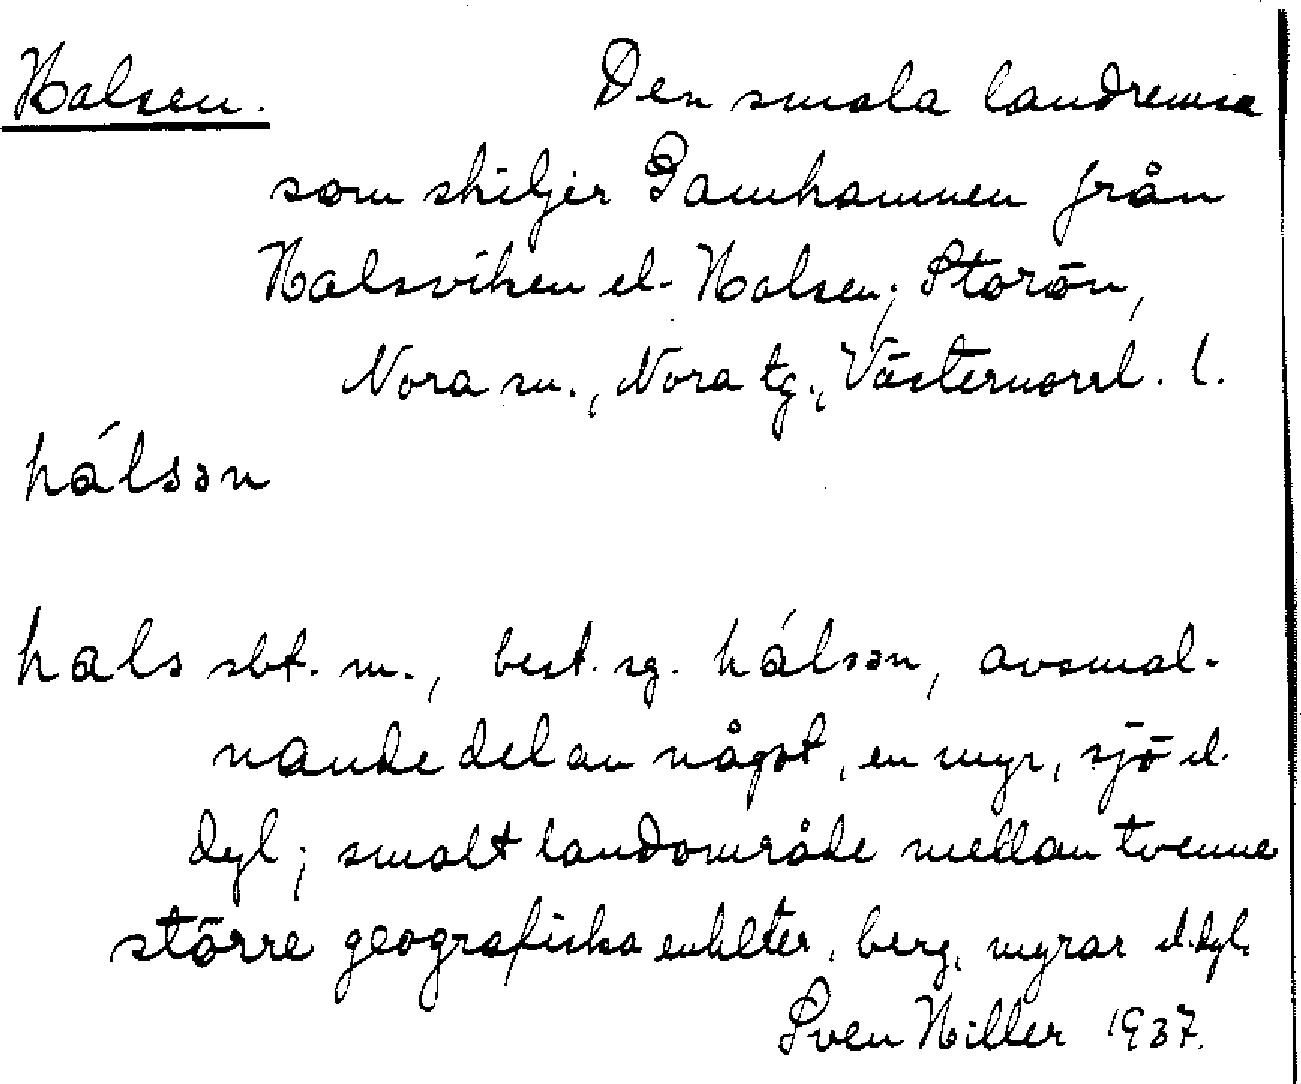 Halsen. Den smala landremsa
som skiljer Gamhamnen från
Halsviken el. Halsen; Storön,
Nora sn., Nora tg., Västernorrl. l.
hálsən
hals sbt. m., best. sg. hálsən, avsmal-
nande del av något, en myr, sjö el.
dyl; smalt landområde mellan tvenne
större geografiska enheter, berg, myrar el. dyl.
Sven Hiller 1937.